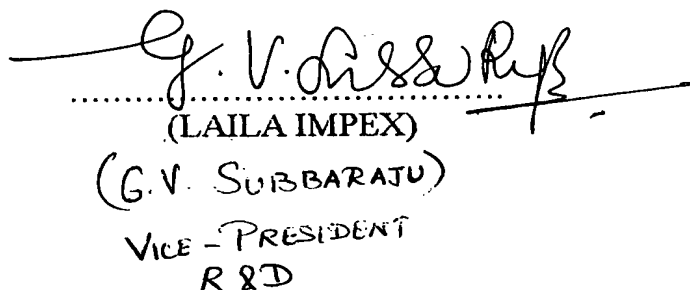 G. V. Subba Raju
(LAILA IMPEX)
(G.V. SUBBARAJU)
VICE-PRESIDENT
R &D